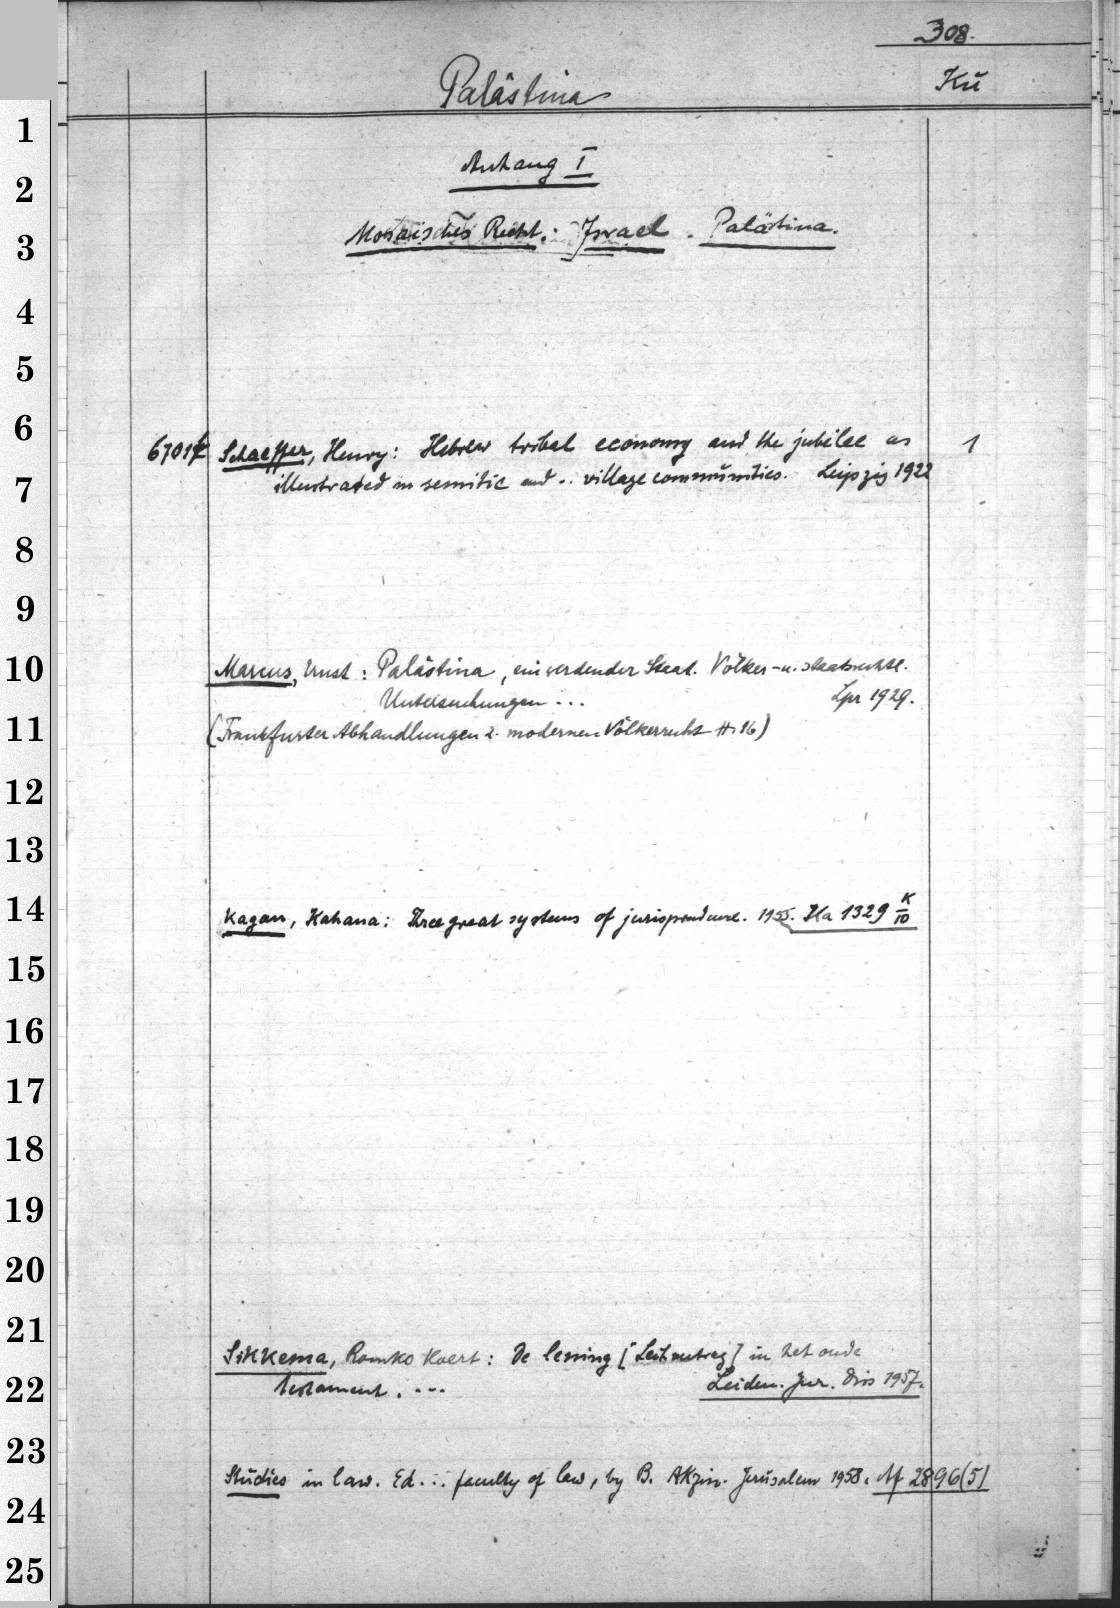 308.
Palästina Kü
Anhang I
Mosaisches Recht.: Israel. Palästina.
67017 Schaeffer, Henry: Hebrew tribal economy and the jubilee as 1
illustrated in semitic and .. village communities. Leipzig 1922
Marcus, Ernst: Palästina, ein werdender Staat. Völker- u. staatsrechtl.
Untersuchungen ... Lpz 1929.
(Frankfurter Abhandlungen z. modernen Völkerrecht H. 16)
Kagan, Kahana: Three great systems of jurisprudence. 1955. Ha 1329 K/10
Sikkema, Romko Koert: De lening [Leihvertrag] in het oude
testament. ... Leiden. Jur. Diss 1957.
Studies in law. Ed... faculty of law, by B. Akzin. Jerusalem 1958. Af 2896(5)
1
2
3
4
5
6
7
8
9
10
11
12
13
14
15
16
17
18
19
20
21
22
23
24
25